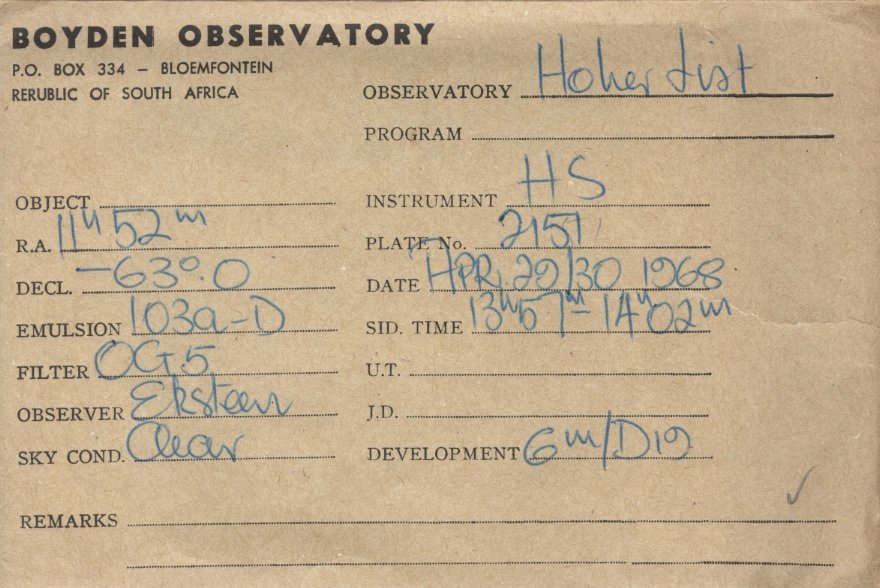 BOYDEN OBSERVATORY
P.O. BOX 334 – BLOEMFONTEIN
RERUBLIC OF SOUTH AFRICA
OBSERVATORY Hoher List
PROGRAM
OBJECT
R.A. 11h 52m
DECL. -63°.0
EMULSION 103a-D
FILTER OG5
OBSERVER Eksteen
SKY COND. Clear
INSTRUMENT HS
PLATE No. 2151
DATE APR. 29/30 1968
SID. TIME 13h57m-14h02m
U.T.
J.D.
DEVELOPMENT 6m/D19
REMARKS